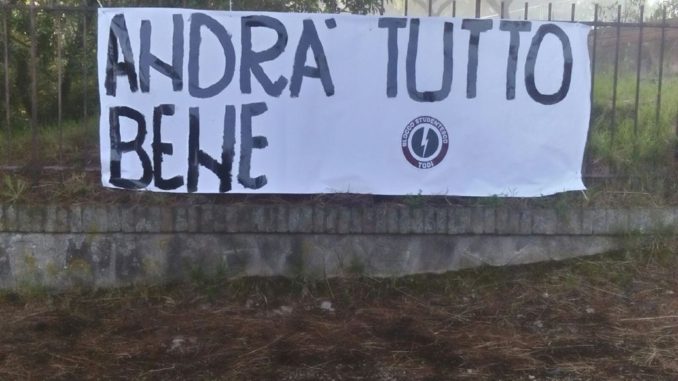 ANDRA' TUTTO
BENE
BLOCCO STUDENTESCO
TODI